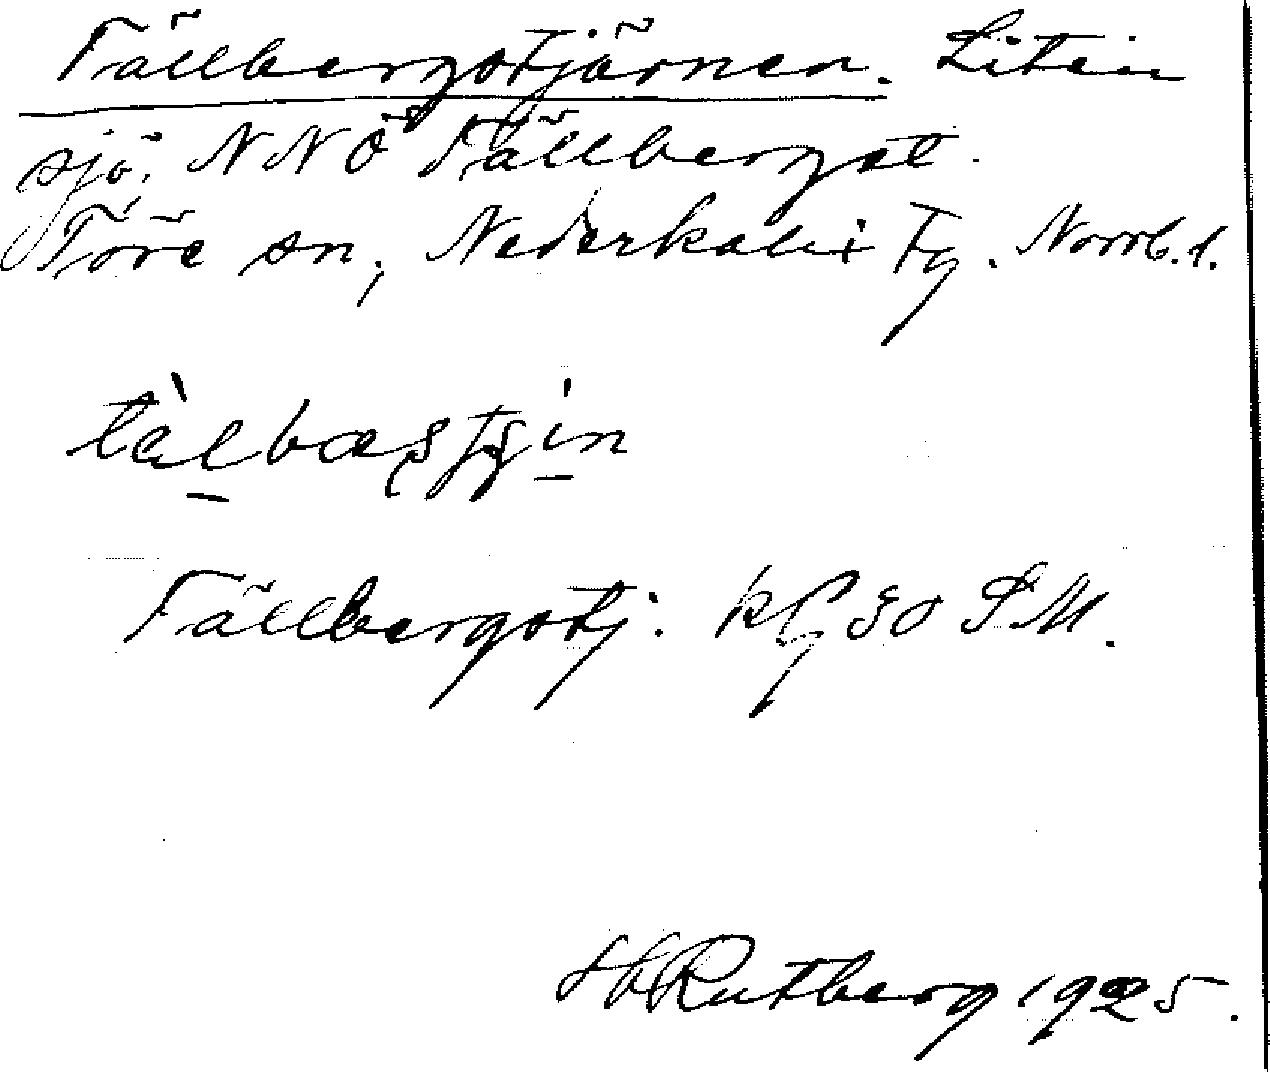 Tällbergstjärnen. Liten
sjö. NNÖ Tällberget.
Töre sn, Nederkalix Tg. Norrb. l.
Tällbergstj. kg 30 SM.
H Rutberg 1925.